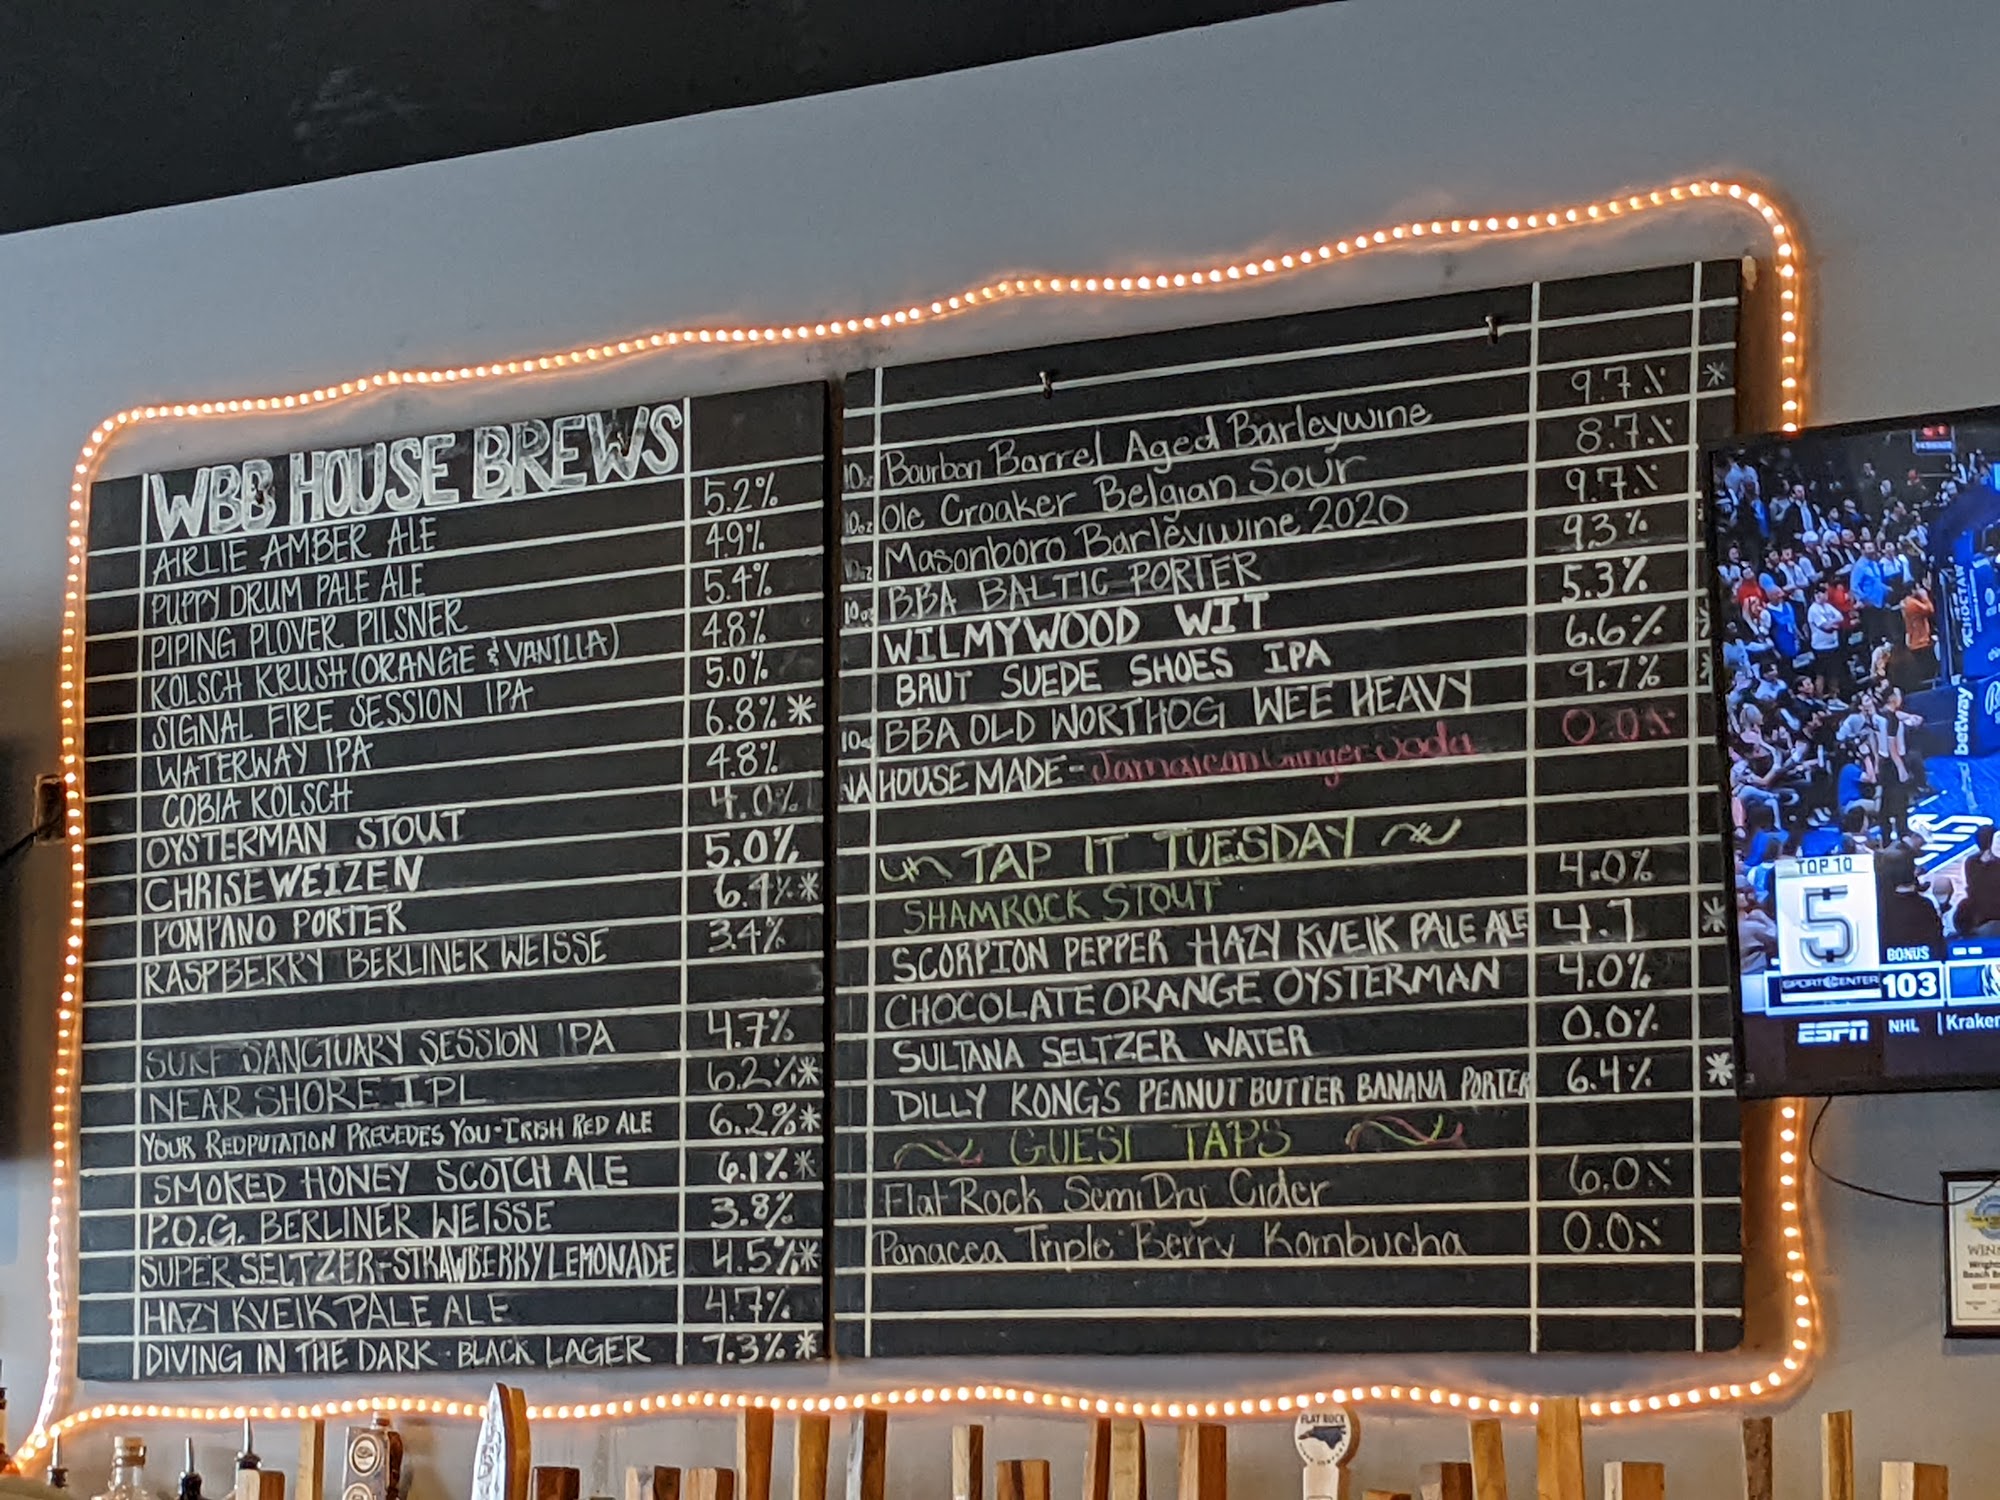 WBB HOUSE BREWS
AIRLIE AMBER ALE 5.2%
PUPPY DRUM PALE ALE 4.9%
PIPING PLOVER PILSNER 5.4%
KOLSCH KRUSH (ORANGE & VANILLA) 4.8%
SIGNAL FIRE SESSION IPA 5.0%
WATERWAY IPA 6.8% *
COBIA KOLSCH 4.8%
OYSTERMAN STOUT 4.0%
CHRISEWEIZEN 5.0%
POMPANO PORTER 6.4% *
RASPBERRY BERLINER WEISSE 3.4%
SURF SANCTUARY SESSION IPA 4.7%
NEAR SHORE IPL 6.2% *
YOUR REDPUTATION PRECEDES YOU - IRISH RED ALE 6.2% *
SMOKED HONEY SCOTCH ALE 6.1% *
P.O.G. BERLINER WEISSE 3.8%
SUPER SELTZER - STRAWBERRY LEMONADE 4.5% *
HAZY KVEIK PALE ALE 4.7%
DIVING IN THE DARK - BLACK LAGER 7.3% *
10oz Bourbon Barrel Aged Barleywine 9.7% *
10oz Ole Croaker Belgian Sour 8.7%
10oz Masonboro Barleywine 2020 9.7%
10oz BBA BALTIC PORTER 9.3%
WILMYWOOD WIT 5.3%
BRUT SUEDE SHOES IPA 6.6% *
10oz BBA OLD WORTHOG WEE HEAVY 9.7% *
NA HOUSE MADE - Jamaican Ginger Soda 0.0%
TAP IT TUESDAY
SHAMROCK STOUT 4.0%
SCORPION PEPPER HAZY KVEIK PALE ALE 4.7 *
CHOCOLATE ORANGE OYSTERMAN 4.0%
SULTANA SELTZER WATER 0.0%
DILLY KONG'S PEANUT BUTTER BANANA PORTER 6.4% *
GUEST TAPS
Flat Rock Semi Dry Cider 6.0%
Panacea Triple Berry Kombucha 0.0%
CHOCTAW
betway
TOP 10
5
SPORTSCENTER
BONUS
103
ESPN NHL | Kraken
FLAT ROCK